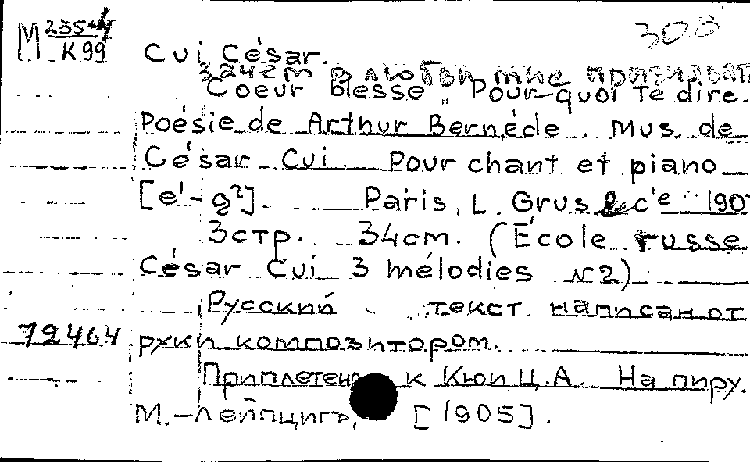 М 235-4
К 99
308
Cui César.
Зачем в любви мне
Coeur blessé „Pourquoi te dire
Poésie de Arthur Bernéde. Mus. de
César Cui Pour chant et piano
[e'-g²]. Paris, L. Grus & cie 190
3 стр. 34cm. (École russe
César Cui 3 mélodies №2)
Русский текст написан от
72464 руки композитором.
Приплетен к Кюи Ц.А. На пиру.
М.-Лейпциг, [1905].